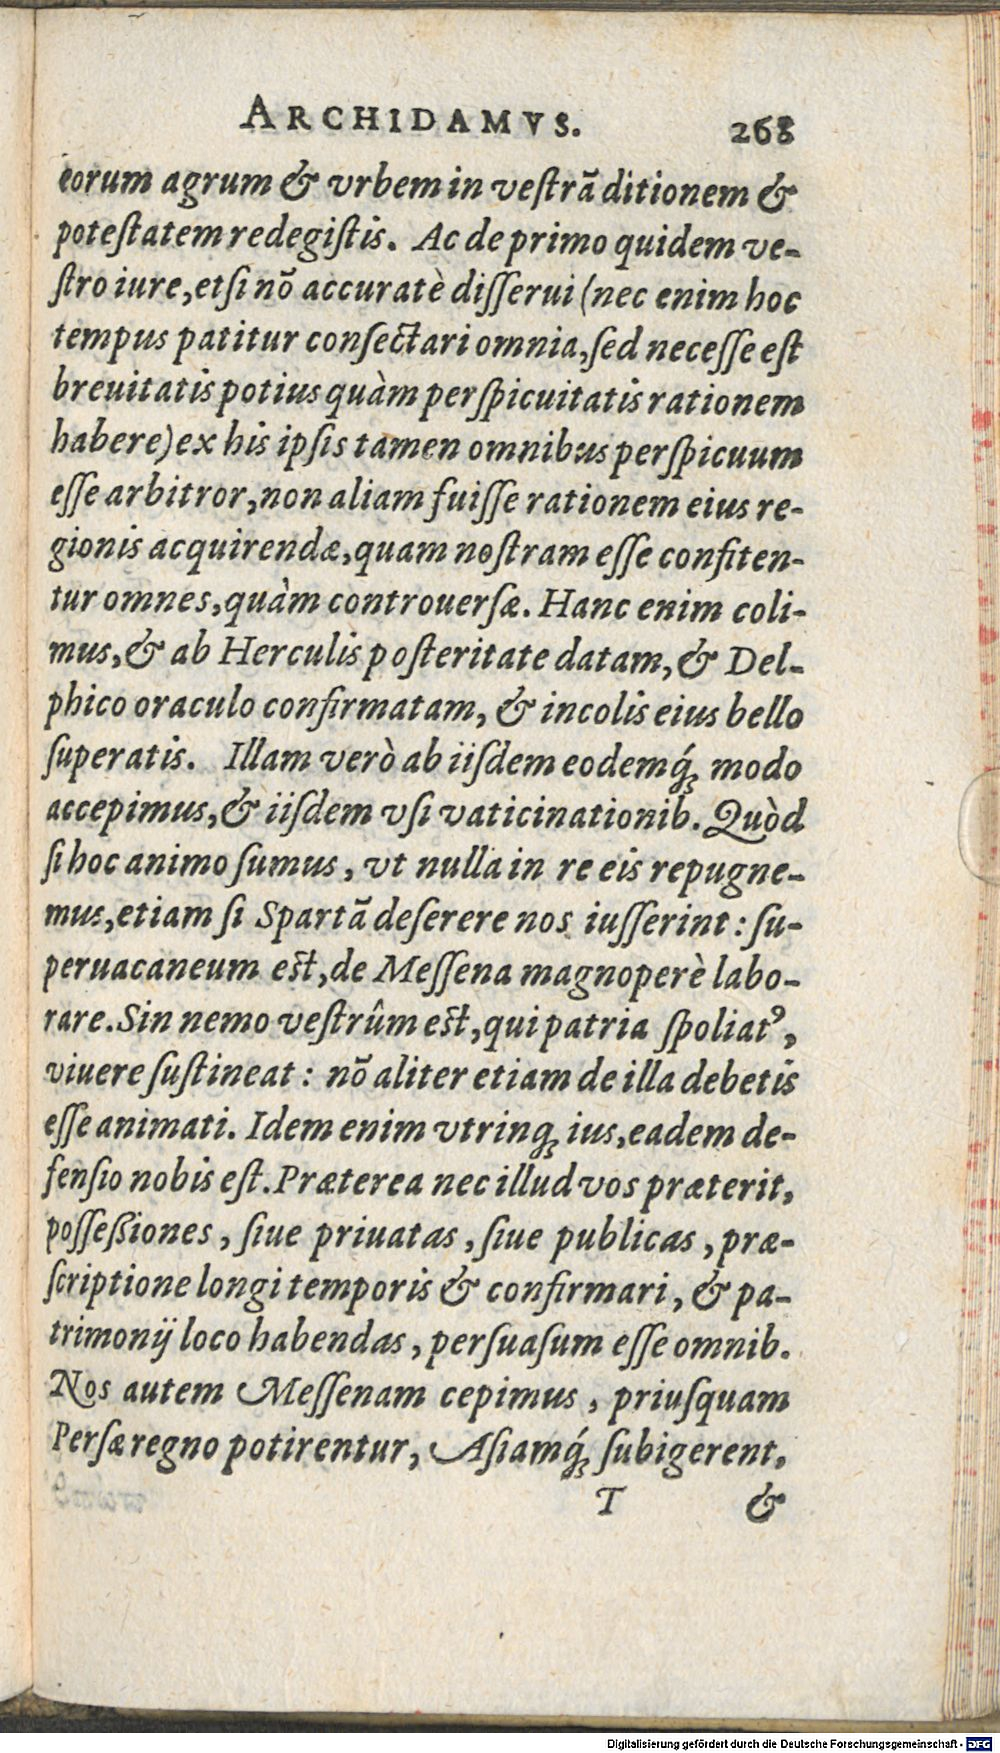 ARCHIDAMVS. 268
eorum agrum & vrbem in veſtrã ditionem &
poteſtatem redegiſtis. Ac de primo quidem ve-
ſtro iure, etſi nõ accuratè diſſerui (nec enim hoc
tempus patitur conſectari omnia, ſed neceſſe eſt
breuitatis potius quàm perſpicuitatis rationem
habere) ex his ipſis tamen omnibus perſpicuum
eſſe arbitror, non aliam fuiſſe rationem eius re-
gionis acquirendæ, quam noſtram eſſe confiten-
tur omnes, quàm controuerſæ. Hanc enim coli-
mus, & ab Herculis poſteritate datam, & Del-
phico oraculo confirmatam, & incolis eius bello
ſuperatis. Illam verò ab iiſdem eodemq́ꝫ modo
accepimus, & iiſdem vſi vaticinationib. Quòd
ſi hoc animo ſumus, vt nulla in re eis repugne-
mus, etiam ſi Spartã deſerere nos iuſſerint: ſu-
peruacaneum est, de Meſſena magnoperè labo-
rare. Sin nemo veſtrûm est, qui patria ſpoliatꝰ,
viuere ſuſtineat: nõ aliter etiam de illa debetis
eſſe animati. Idem enim vtrinqꝫ ius, eadem de-
fenſio nobis eſt. Præterea nec illud vos præterit,
poſſeßiones, ſiue priuatas, ſiue publicas, præ-
ſcriptione longi temporis & confirmari, & pa-
trimonij loco habendas, perſuaſum eſſe omnib.
Nos autem Meſſenam cepimus, priuſquam
Perſæ regno potirentur, Aſiamq́ꝫ ſubigerent,
T &
Digitalisierung gefördert durch die Deutsche Forschungsgemeinschaft - DFG